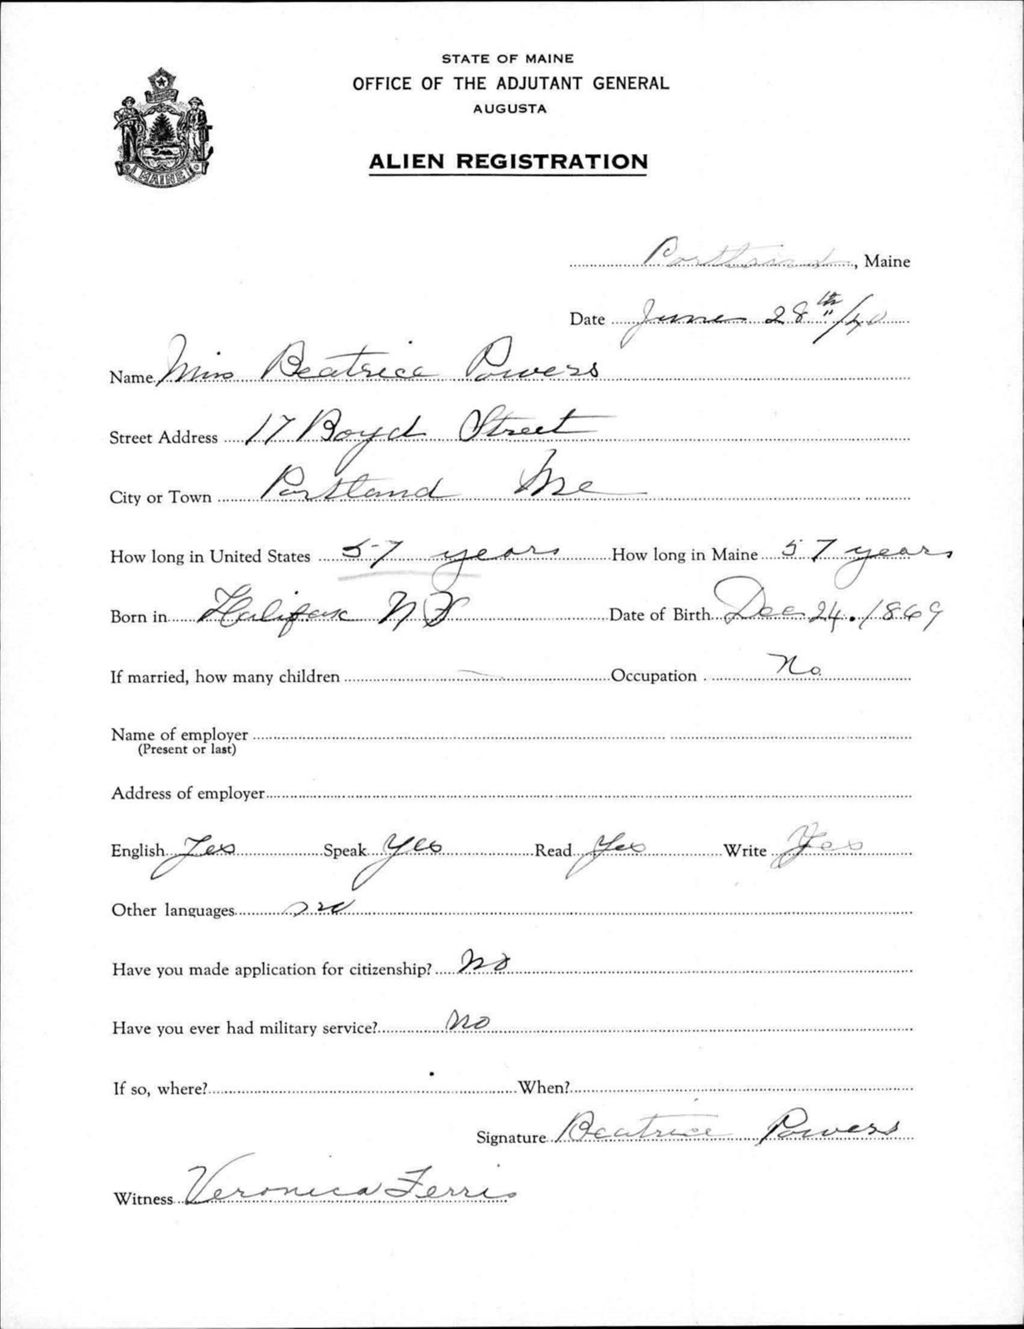 STATE OF MAINE
OFFICE OF THE ADJUTANT GENERAL
AUGUSTA
ALIEN REGISTRATION
MAINE
Portland, Maine
Date June 28th/40
Name Miss Beatrice Powers
Street Address 17 Boyd Street
City or Town Portland Me
How long in United States 57 years How long in Maine 57 years
Born in Halifax N S Date of Birth Dec 24. 1869
If married, how many children — Occupation No.
Name of employer
(Present or last)
Address of employer
English Yes Speak Yes Read Yes Write Yes
Other languages no
Have you made application for citizenship? No
Have you ever had military service? No
If so, where? When?
Signature Beatrice Powers
Witness Veronica Ferris